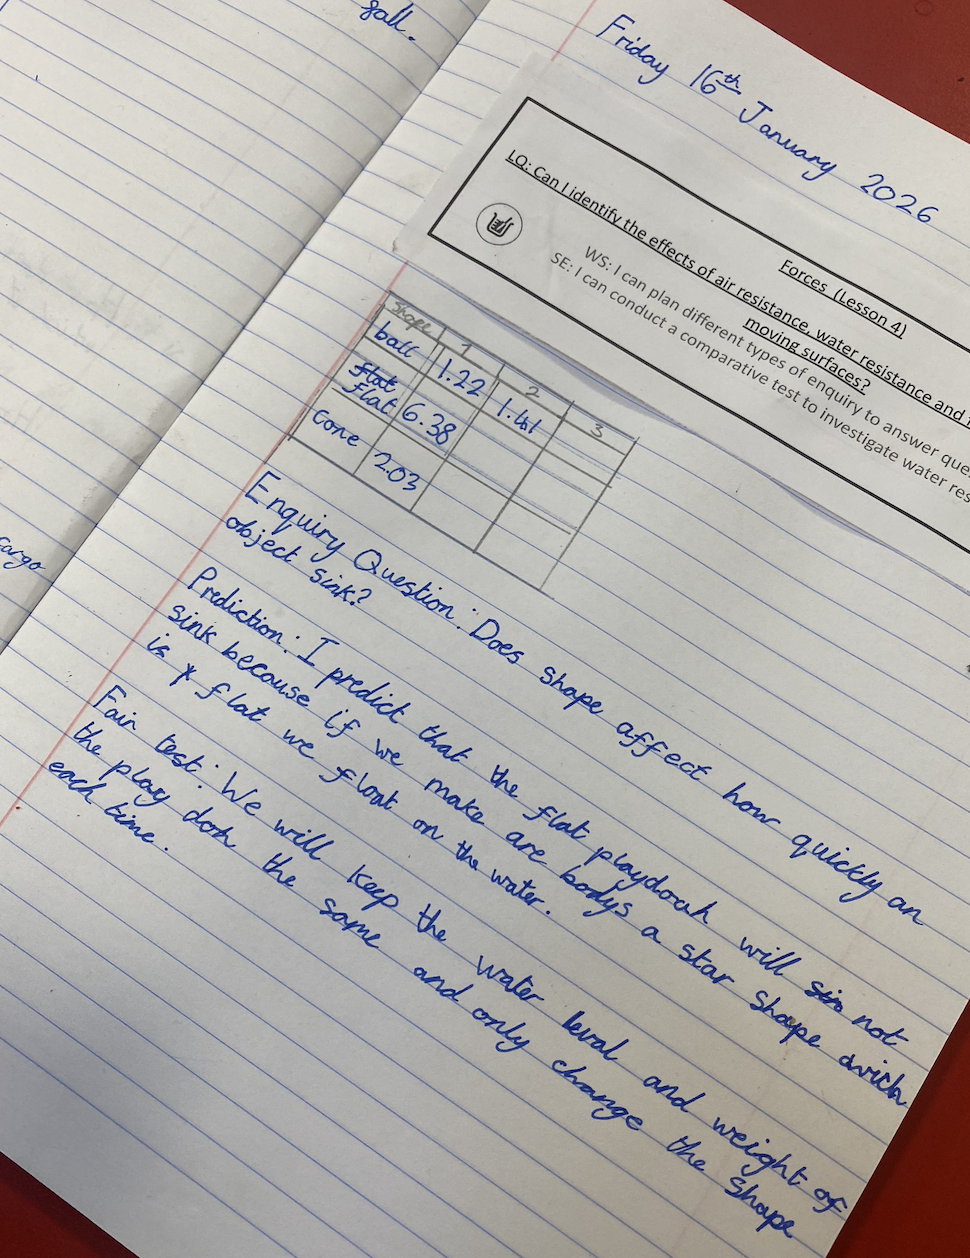 fall.
Friday 16th January 2026
Forces (Lesson 4)
LQ: Can I identify the effects of air resistance, water resistance and
moving surfaces?
WS: I can plan different types of enquiry to answer que
SE: I can conduct a comparative test to investigate water res
Shape 1 2 3
ball 1.22 1.41
flat
flat 6.38
cone 2.03
Enquiry Question: Does shape affect how quickly an
object sink?
Prediction: I predict that the flat playdouh will not
sink because if we make are bodys a star shape wich
is flat we float on the water.
Fair test: We will keep the water leval and weight of
the play doh the same and only change the shape
each time.
cargo